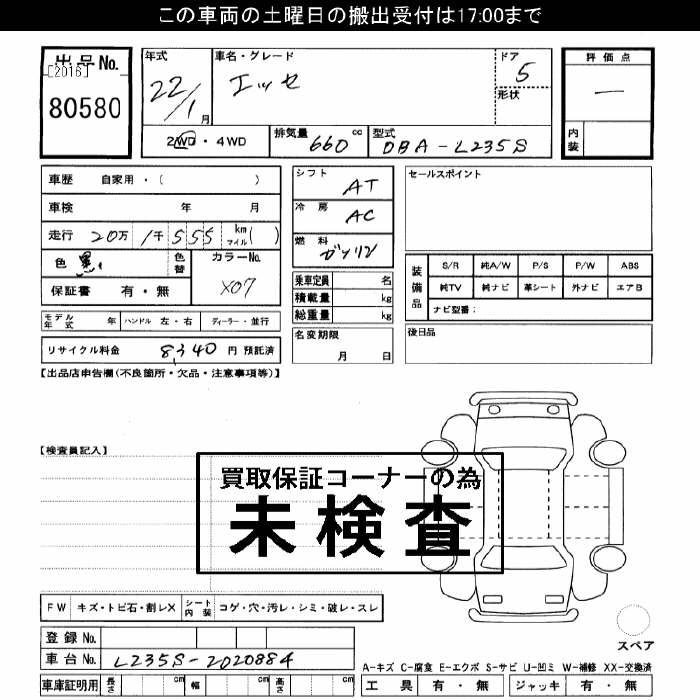 この車両の土曜日の搬出受付は17:00まで
出品No.
[2016]
80580
年式
22/1月
車名・グレード
エッセ
ドア
5
形状
評価点
—
内装
2WD・4WD
排気量 660 cc
型式 DBA-L235S
車歴 自家用・( )
車検 年 月
走行 20万 1千555 km マイル( )
色 黒
色替
カラーNo.
X07
保証書 有・無
シフト
AT
冷房
AC
燃料
ガソリン
乗車定員 名
積載量 kg
総重量 kg
名変期限
月 日
セールスポイント
装備品
S/R 純A/W P/S P/W ABS
純TV 純ナビ 革シート 外ナビ エアB
ナビ型番:
後日品
モデル年式 年 ハンドル 左・右 ディーラー・並行
リサイクル料金 8,340 円 預託済
【出品店申告欄(不良箇所・欠品・注意事項等)】
【検査員記入】
買取保証コーナーの為
未検査
FW キズ・トビ石・割レX シート内装 コゲ・穴・汚レ・シミ・破レ・スレ
登録No.
車台No. L235S-2020884
車庫証明用 長さ cm 幅 cm 高さ cm
スペア
A-キズ C-腐食 E-エクボ S-サビ U-凹ミ W-補修 XX-交換済
工具 有・無 ジャッキ 有・無